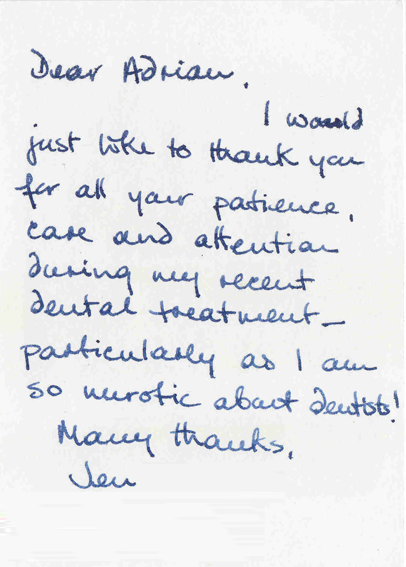 Dear Adrian,
I would
just like to thank you
for all your patience,
care and attention
during my recent
dental treatment –
particularly as I am
so nurotic about dentists!
Many thanks,
Jen